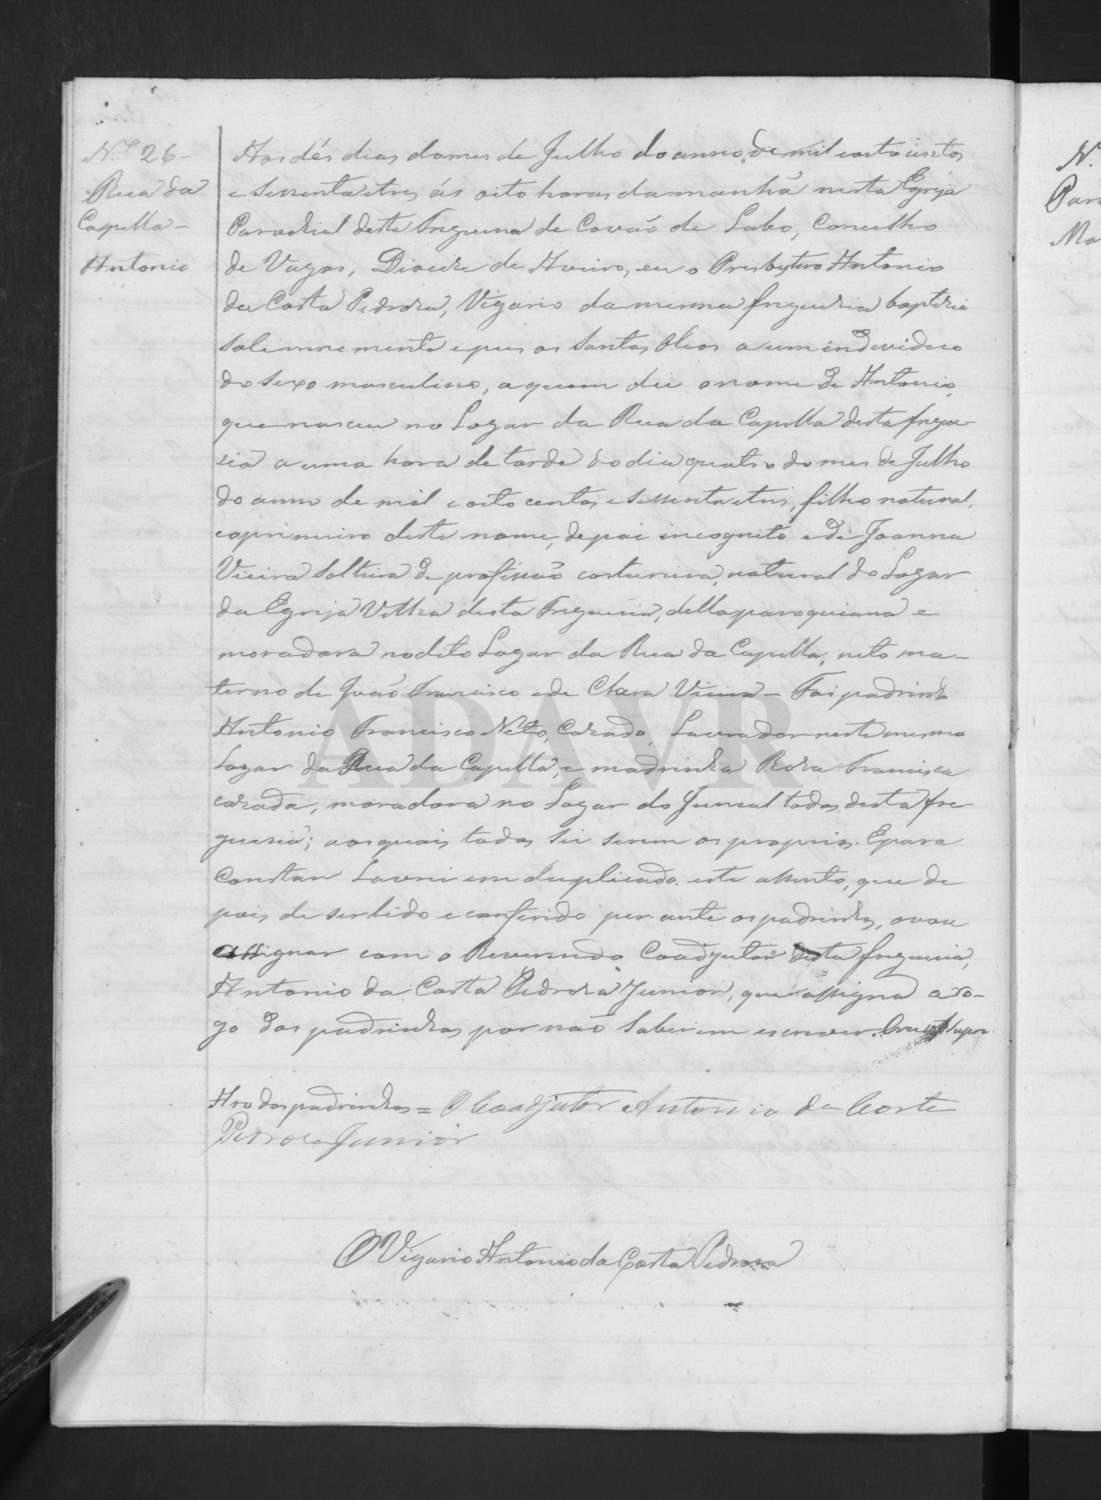 N.º 26-
Rua da
Capella-
Antonio
Aos dés dias do mes de Julho do anno de mil e oito centos
e sessenta e tres ás oito horas da manhã nesta Egreja
Parochial deste Freguesia de Covão de Lobo, Concelho
de Vagos, Diocese de Aveiro, eu o Presbytero Antonio
da Costa Pedroza, Vigario da mesma freguesia baptizei
solemnemente e pus os Santos Oleos a um individuo
do sexo masculino, a quem dei o nome de Antonio,
que nasceu no Logar da Rua da Capella desta fregue-
sia a uma hora de tarde do dia quatro do mes de Julho
do anno de mil e oito centos e sessenta e tres, filho natural,
e o primeiro deste nome, de pai incognito e de Joanna
Vieira Solteira de profissão costureira, natural do Logar
da Egreja Velha desta Freguesia, della paroquiana e
moradora no dito Logar da Rua da Capella, neto ma-
terno de João Francisco e de Clara Vieira - Foi padrinho
Antonio Francisco Neto, Casado, Lavrador neste mesmo
Logar da Rua da Capella, e madrinha Roza Francisca
casada, moradora no Logar do Juncal todos desta fre
guesia; aos quais todos sei serem os proprios. E para
constar Lavrei em duplicado este assento, que de
pois de ser lido e conferido perante os padrinhos, o vou
assignar com o Reverendo Coadjutor desta freguesia,
Antonio da Costa Pedroza Junior, que assigna a ro-
go dos padrinhos por não saberem escrever. Era ut supra
A ro dos padrinhos = O Coadjutor Antonio da Costa
Pedroza Junior
O Vigario Antonio da Costa Pedroza
ADAVR
N.